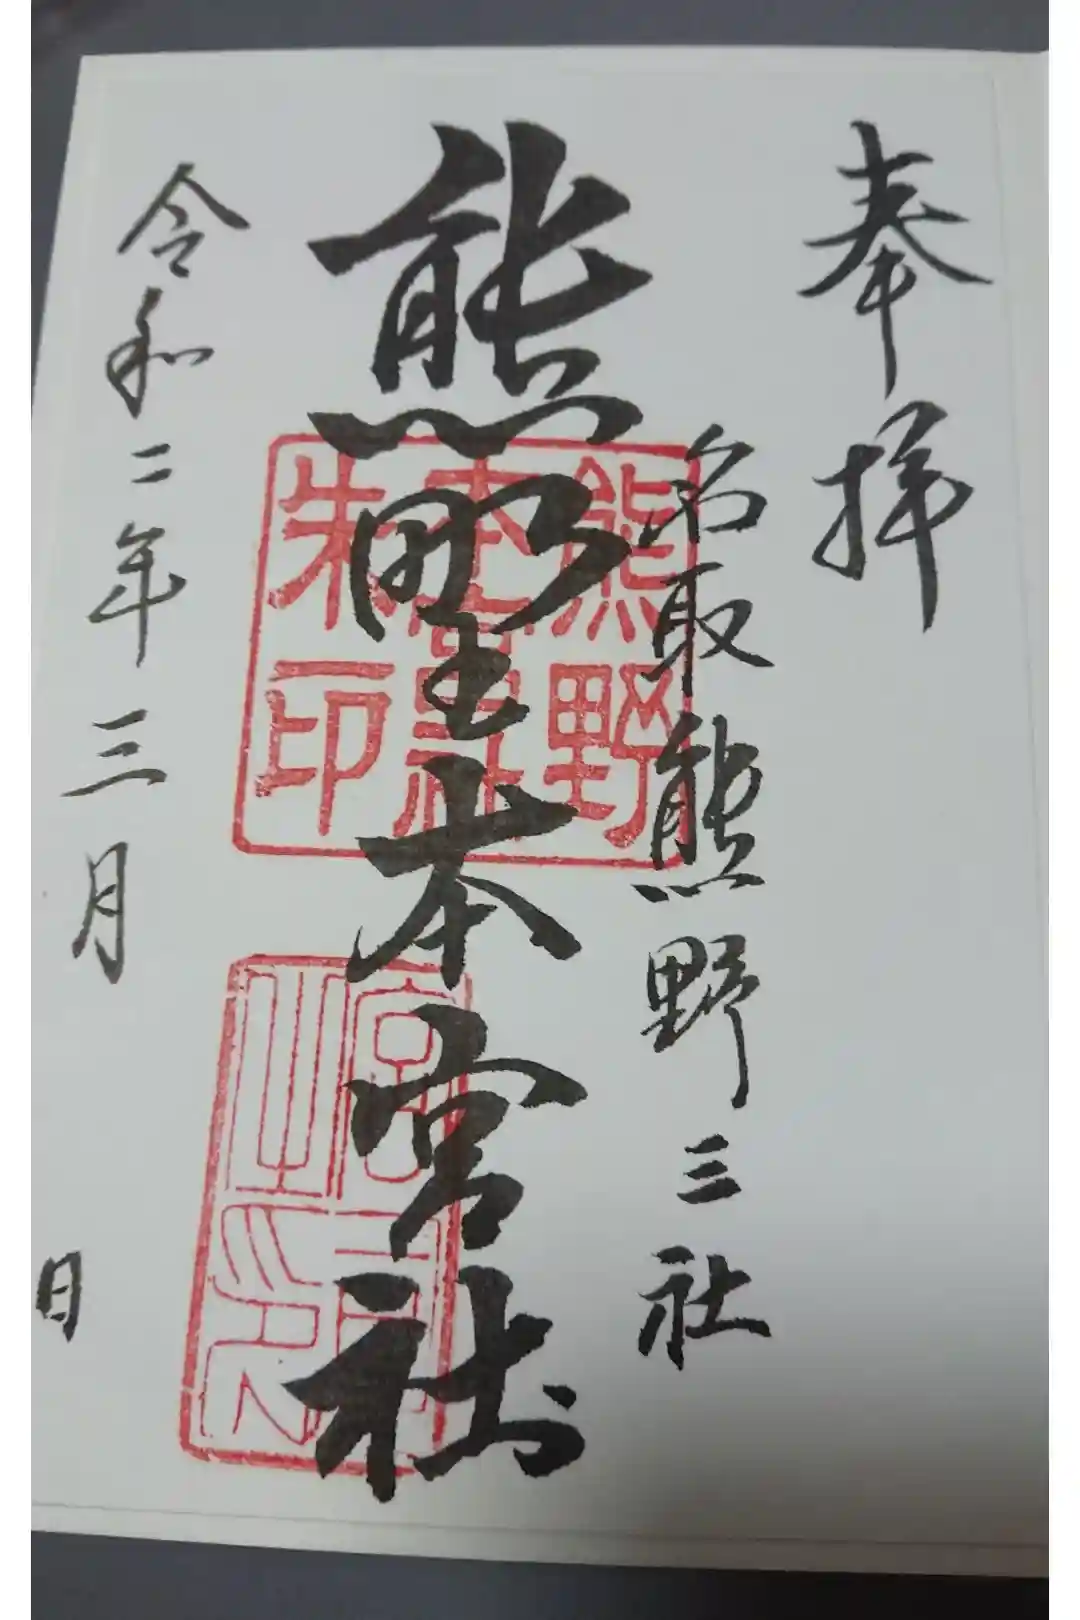 奉拝
名取熊野三社
熊野本宮社
熊野
本宮社
朱印
令和二年三月 日